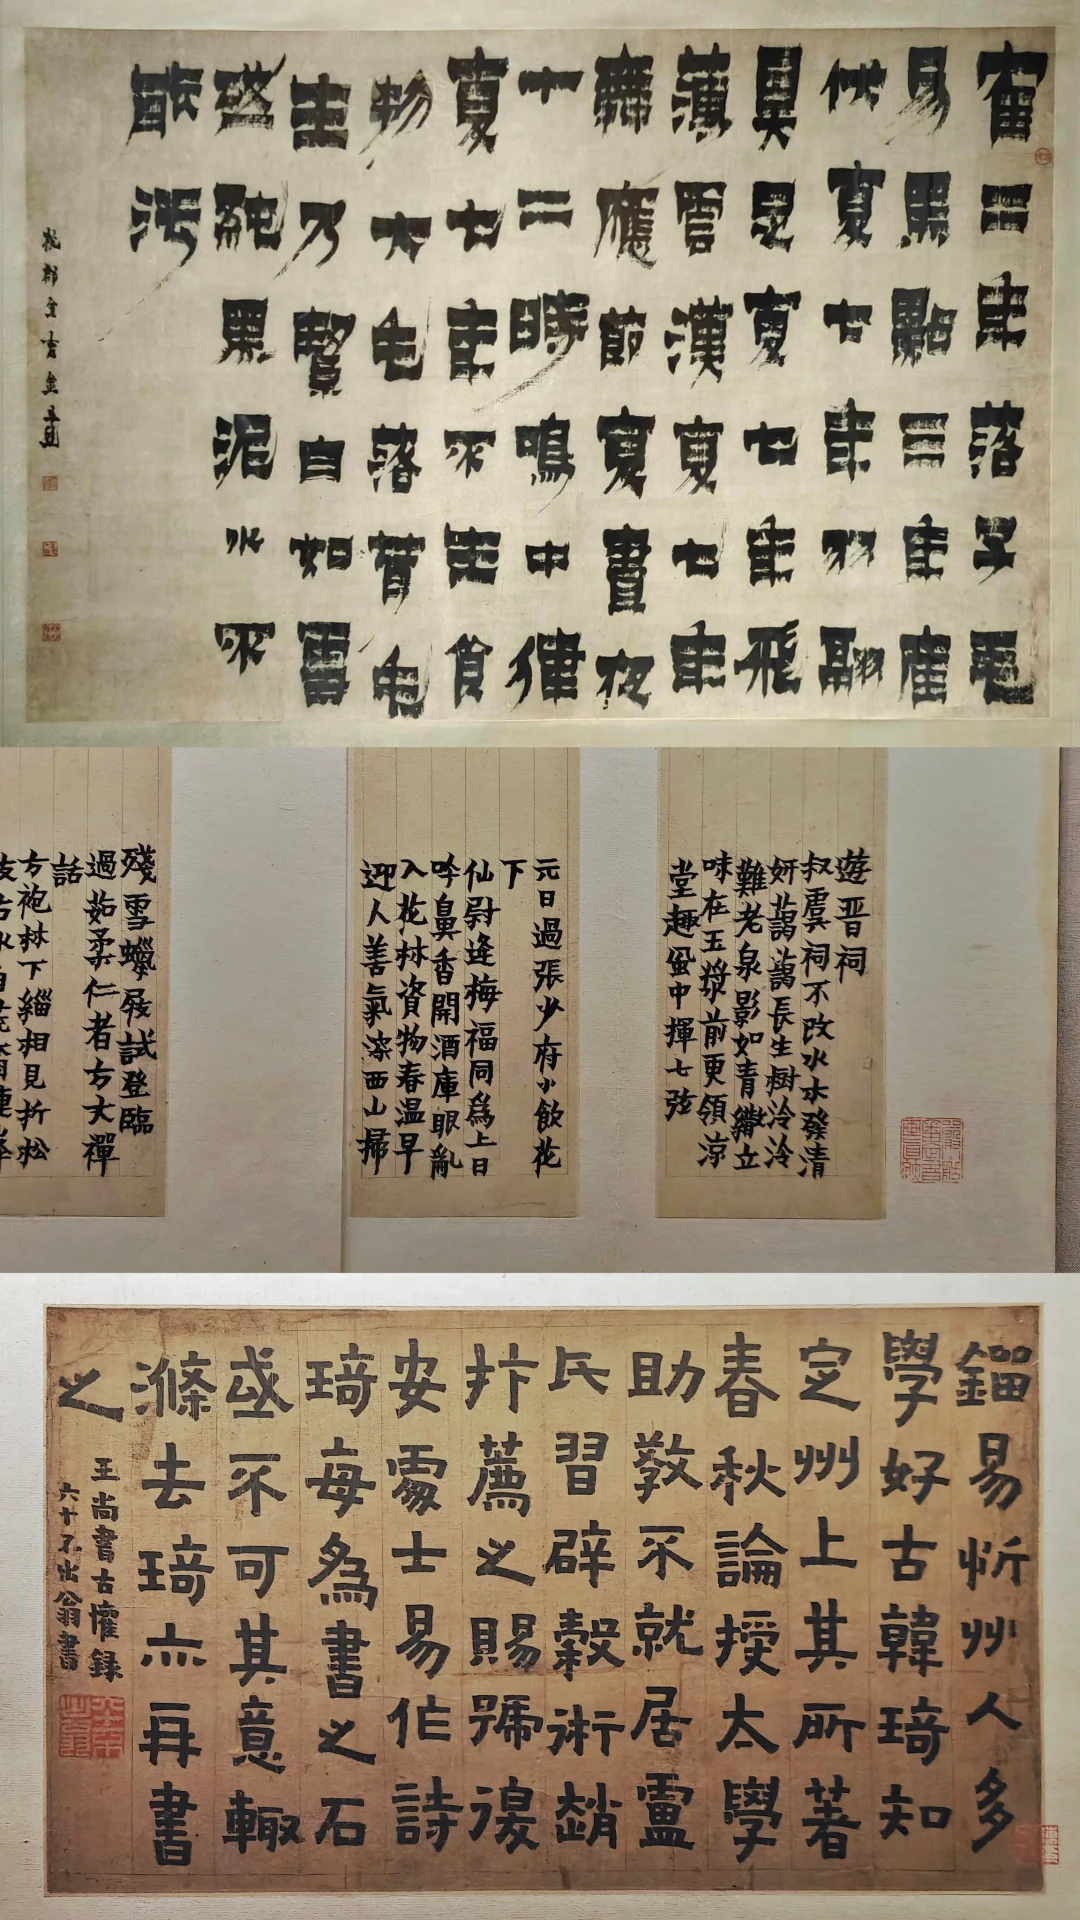 隺二年落子毛
易黑點三年產
伏夏七年羽翮
具足夏七年飛
薄雲漢夏七年
舞應節夏晝夜
十二時鳴中律
夏七年不生食
物大毛落茸毛
生乃白如雪
純黑泥水不
能污
杭郡金吉金
遊晋祠
叔虞祠不改水木發清
妍藹藹長生樹泠泠
難老泉影如青立
味在玉漿前更領涼
堂趣風中揮七弦
元日過張少府小飲花
下
仙尉逢梅福同為上日
吟鼻香開酒庫眼亂
入花林資物春温早
迎人善氣深西山掃
殘雪蠟屐試登臨
過茹柔仁者方大禪
話
方袍林下緇相見折松
鎦易忻州人多
學好古韓琦知
定州上其所著
春秋論授太學
助教不就居盧
氏習辟穀術趙
抃薦之賜號退
安處士易作詩
琦每為書之石
或不可其意輒
滌去琦亦再書
之
王尚書古懽録
六十不出翁書